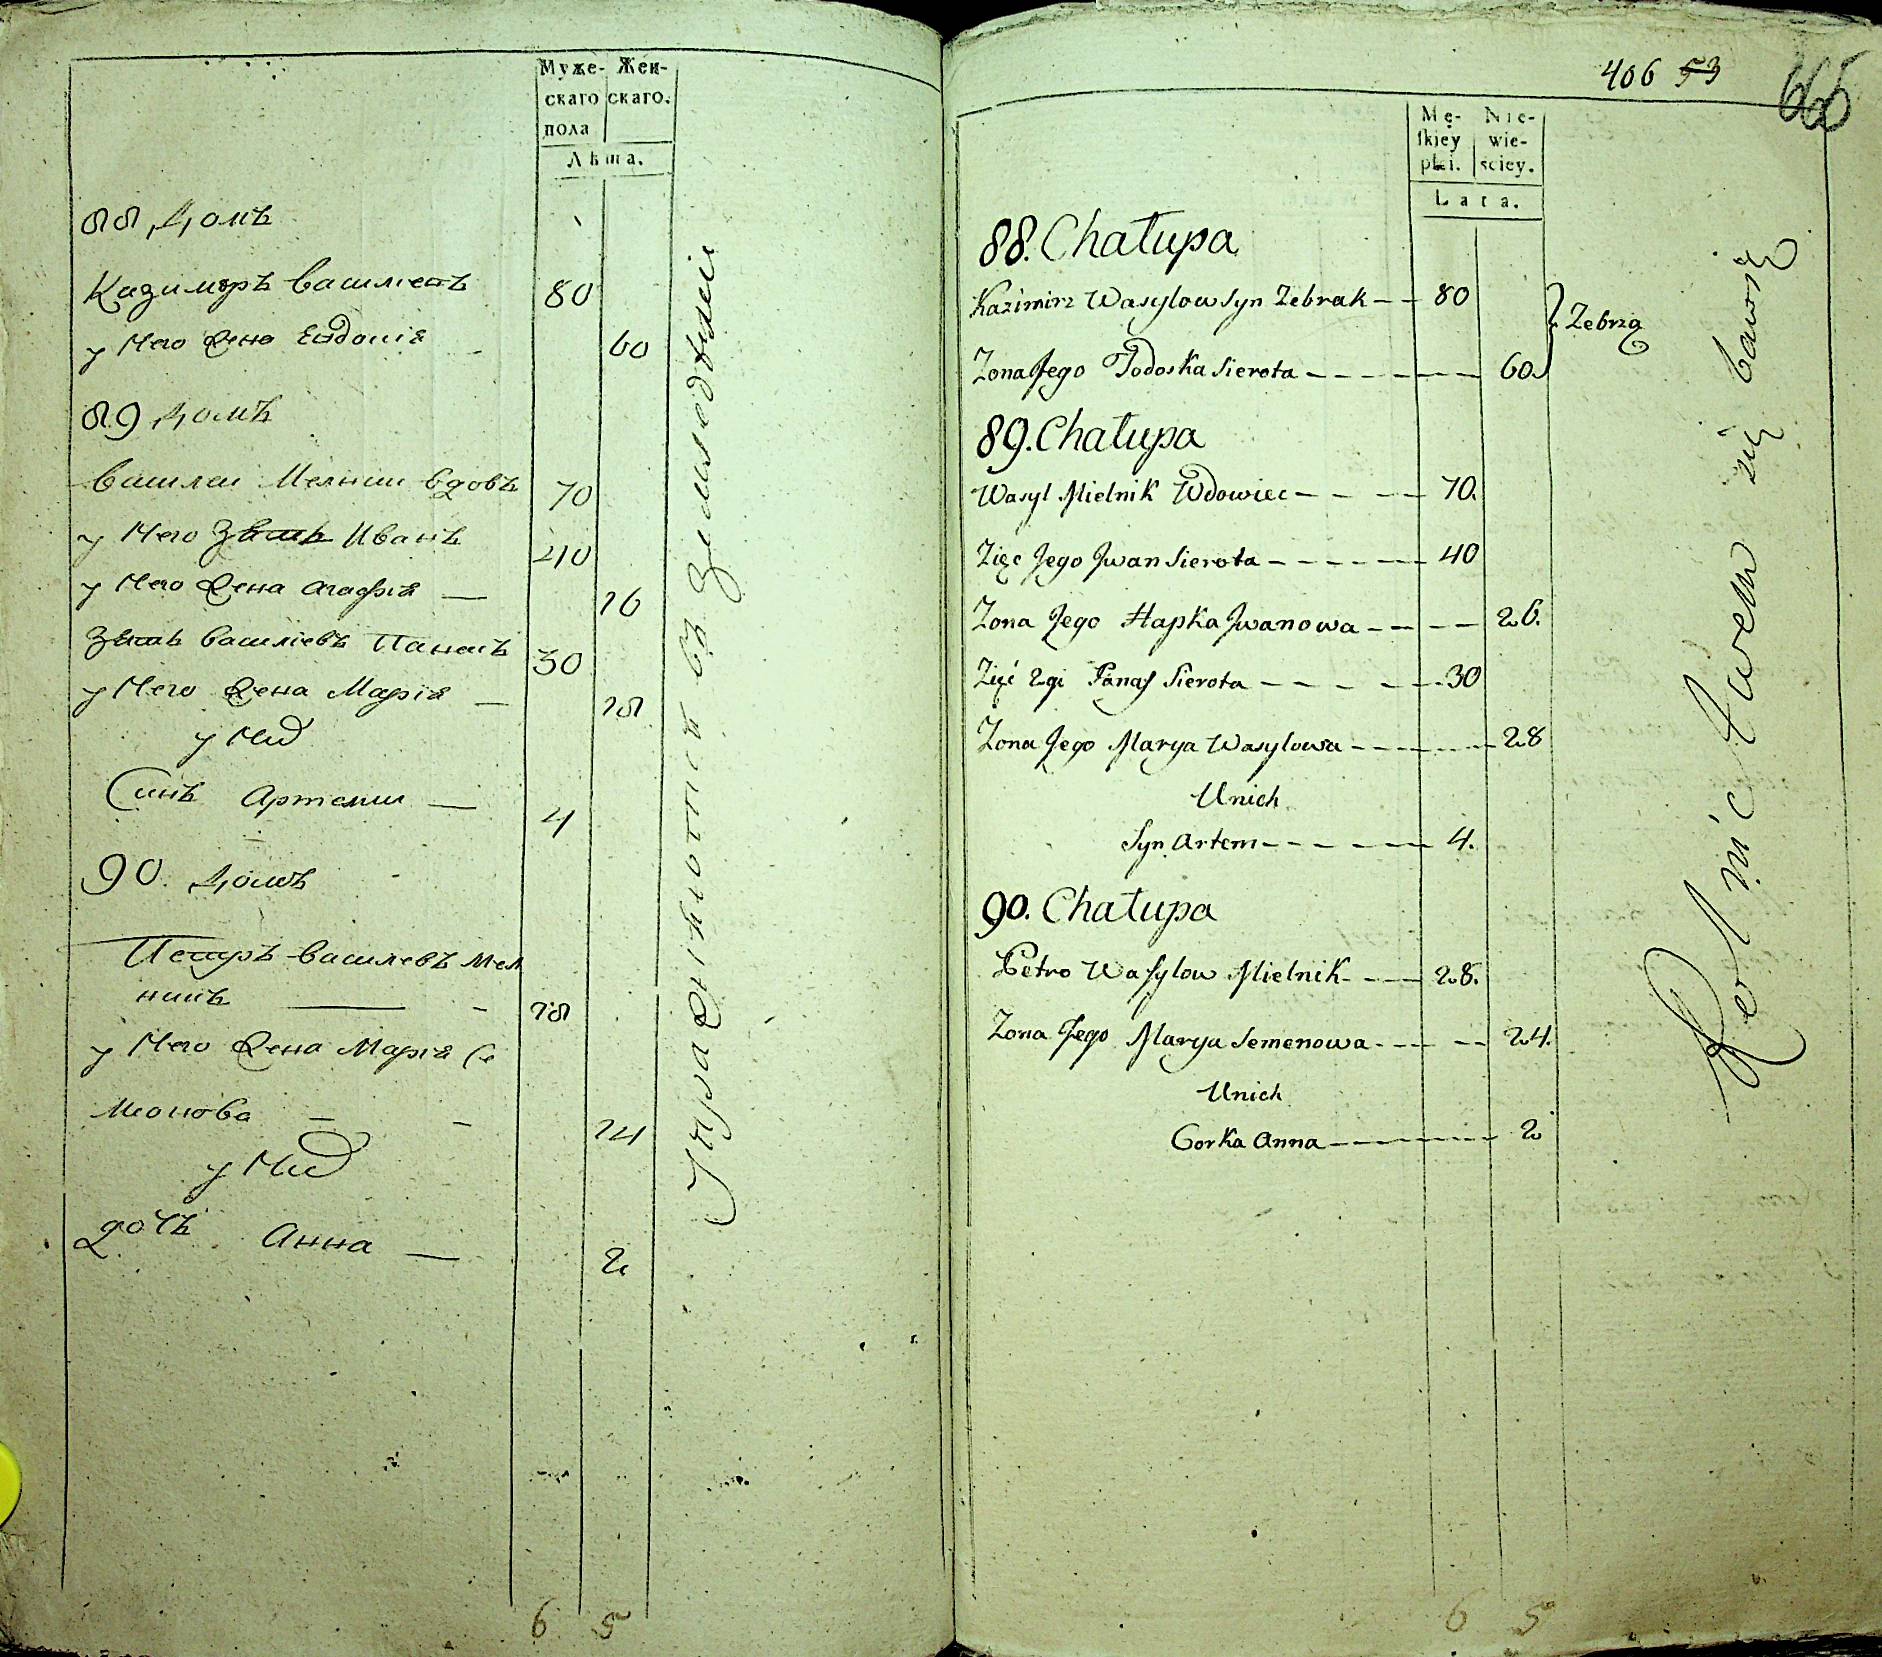 Муже- Жен-
скаго скаго.
пола
Лѣта.
88 домъ
Казимѣръ Василевъ 80
у Него Жена Евдокія 60
89 домъ
Василей Мелник вдовъ 70
у Него Зять Иванъ 40
у Него Жена Агафія — 26
Зять Василіевъ Панасъ 30
у Него Жена Марія — 28
у Них
Синъ Артемий — 4
90. домъ
Петръ Василевъ Мел
никъ — 28
у Него Жена Марія Се
меонова — 24
у Них
дочь Анна — 2
Упражняются въ Земледѣліи
6 5
406 53
666
Mę- Nie-
skiey wie-
płci. ściey.
Lata.
88. Chałupa
Kazimirz Wasylow Syn Zebrak — 80
Zona Jego Todoska Sierota — 60
Zebrzą
89. Chałupa
Wasyl Mielnik Wdowiec — 70.
Zięc Jego Jwan Sierota — 40
Zona Jego Hapka Jwanowa — 26.
Zięć 2gi Panas Sierota — 30
Zona Jego Marya Wasylowa — 28
Unich
Syn Artem — 4.
90. Chałupa
Petro Wasylow Mielnik — 28.
Zona Jego Marya Semenowa — 24.
Unich
Corka Anna — 2
Rolnictwem się bawią
6 5